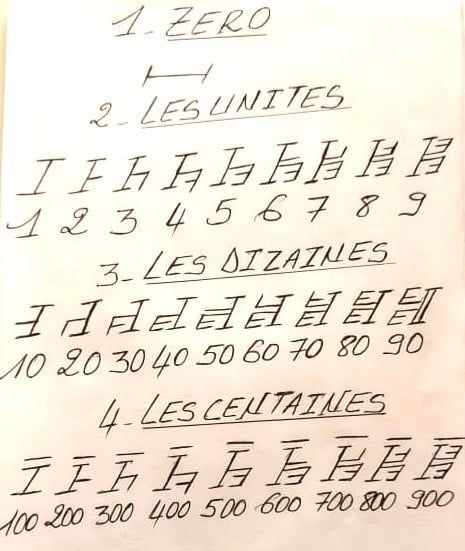 1. ZERO
2_ LES UNITES
1 2 3 4 5 6 7 8 9
3_ LES DIZAINES
10 20 30 40 50 60 70 80 90
4_ LES CENTAINES
100 200 300 400 500 600 700 800 900